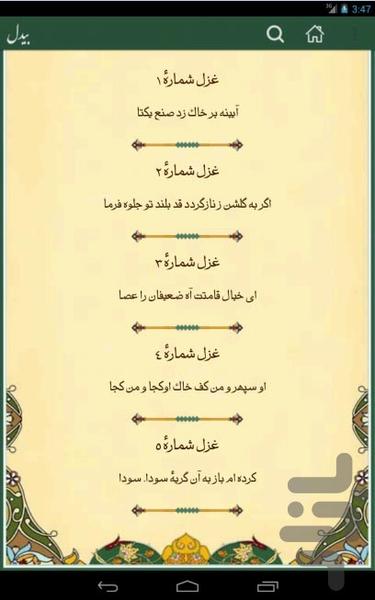 3G 3:47
بیدل
غزل شمارهٔ ۱
آیینه بر خاک زد صنع یکتا
غزل شمارهٔ ۲
اگر به گلشن ز نازگردد قد بلند تو جلوه فرما
غزل شمارهٔ ۳
ای خیال قامتت آه ضعیفان را عصا
غزل شمارهٔ ۴
او سپهر و من کف خاک اوکجا و من کجا
غزل شمارهٔ ۵
کرده ام باز به آن گریهٔ سودا، سودا